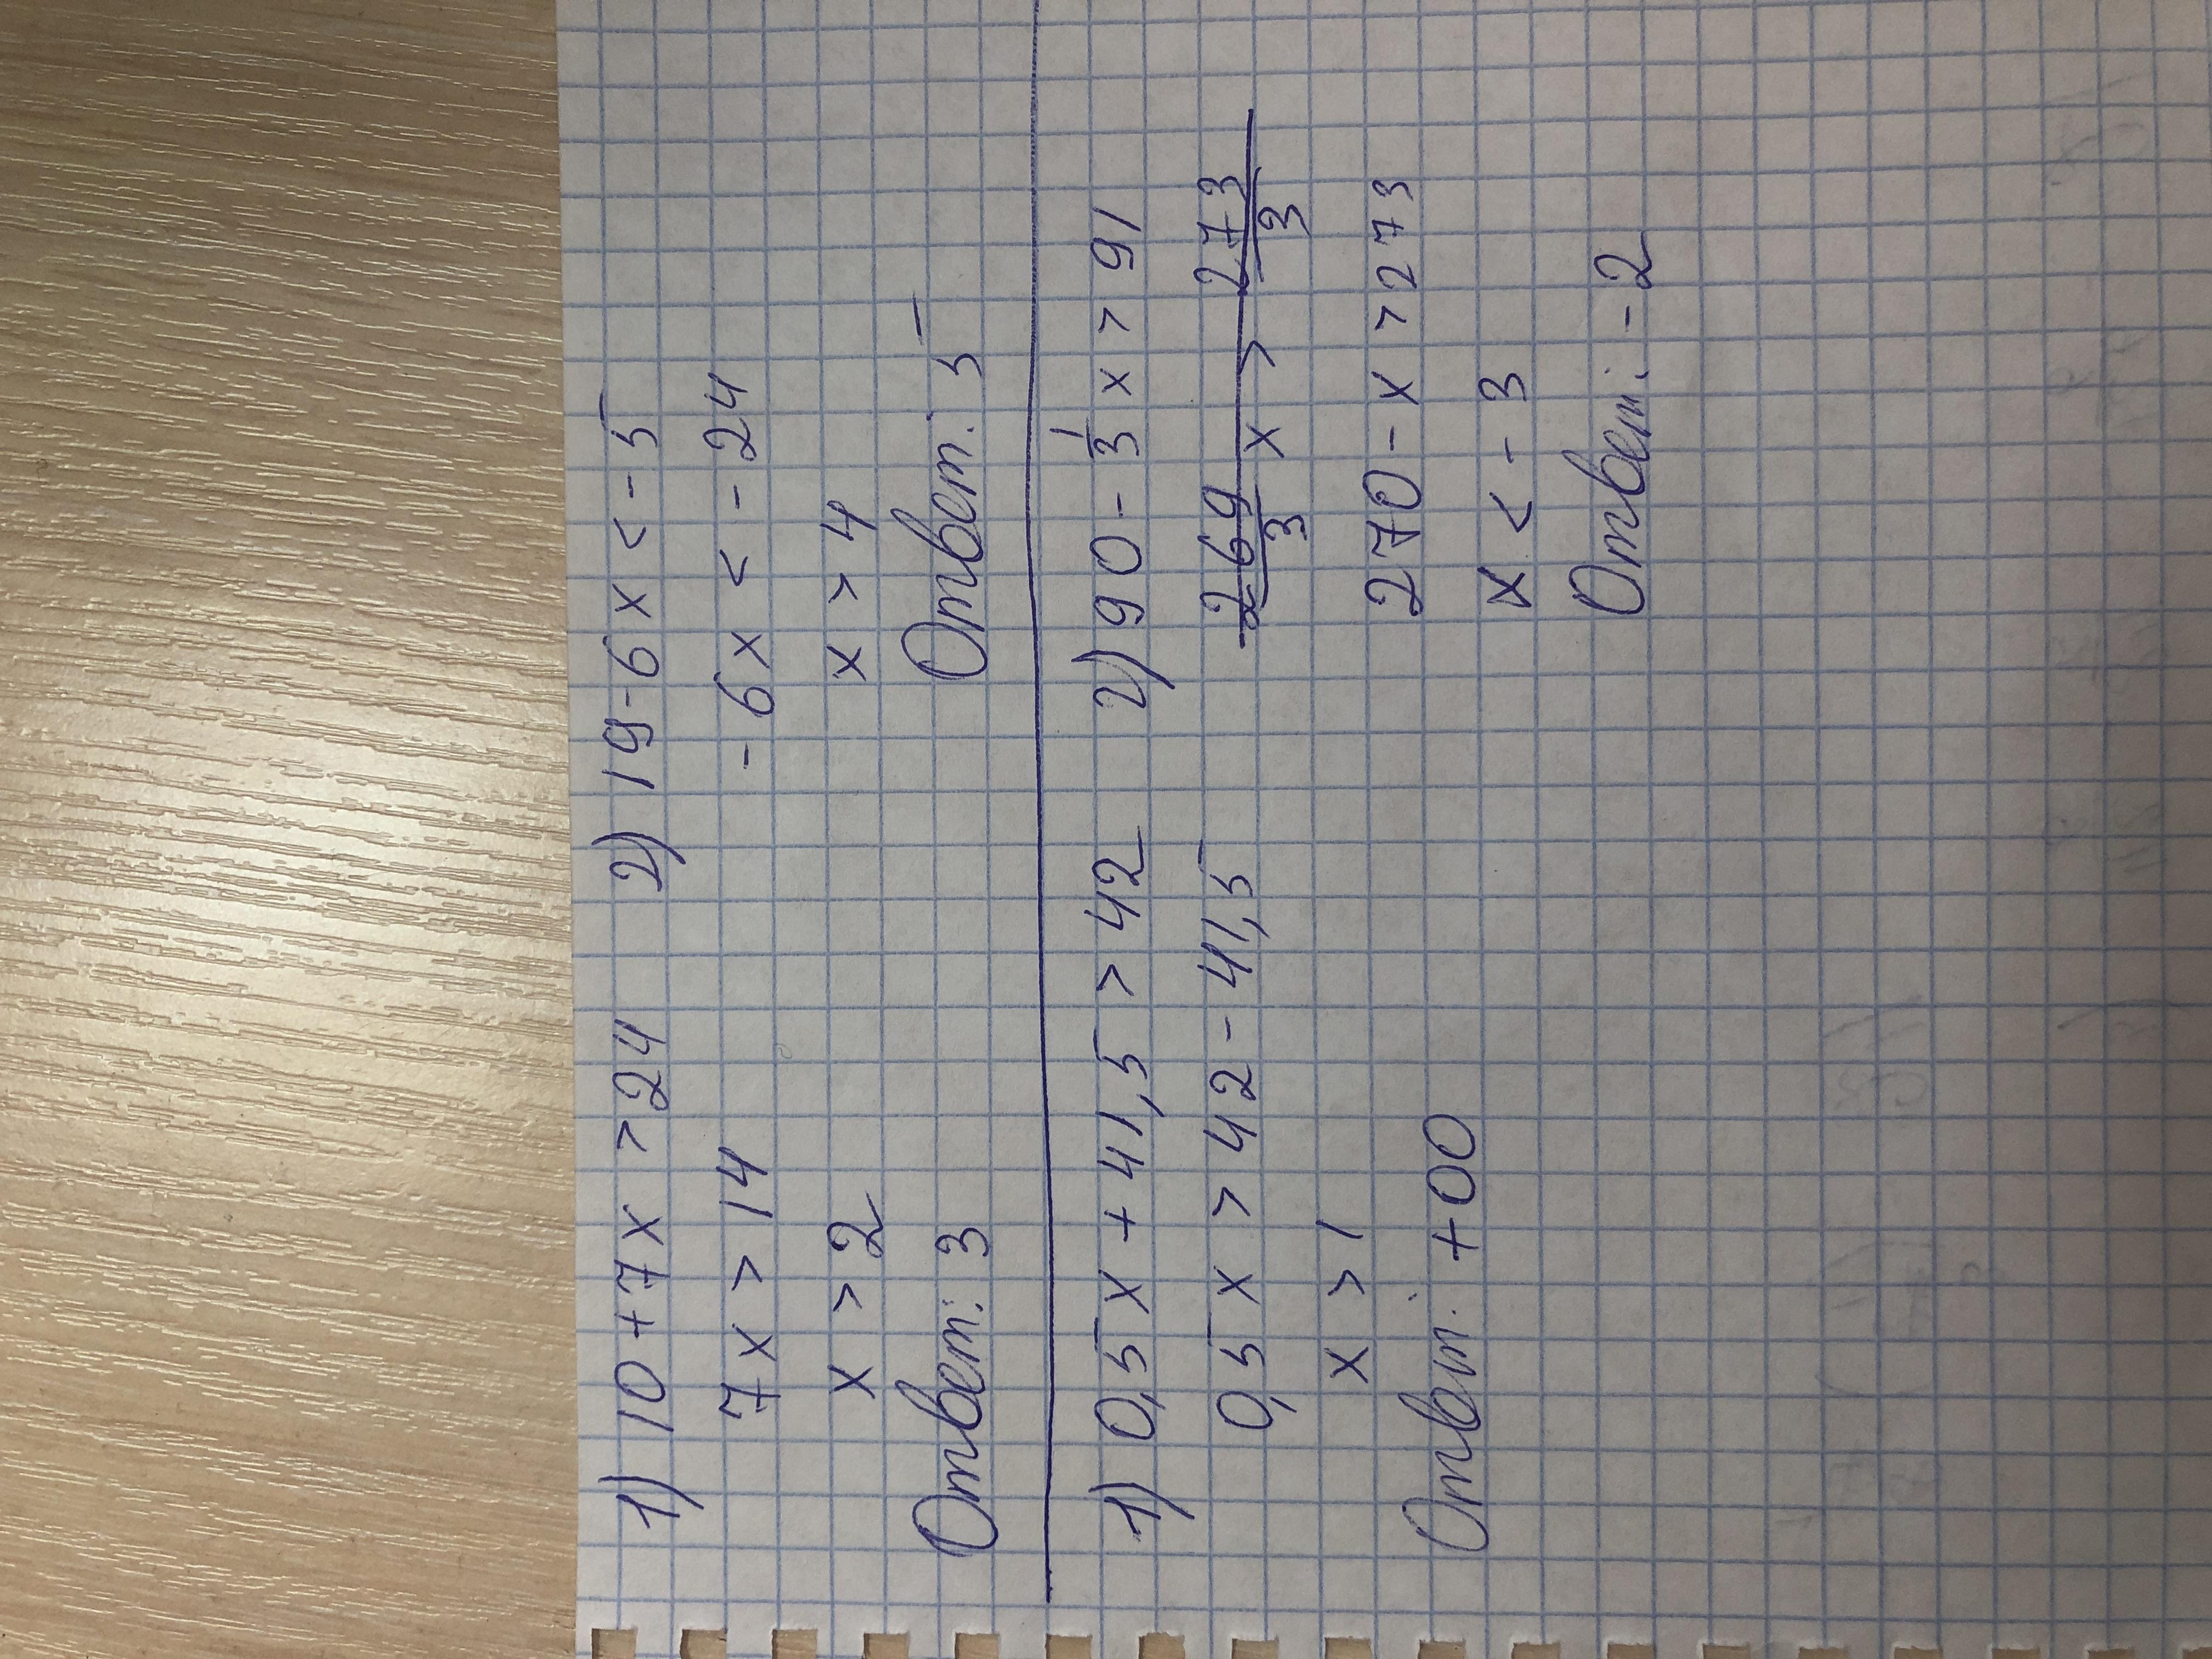 1) 10 + 7x > 24
7x > 14
x > 2
Ответ: 3
2) 19 - 6x < -5
-6x < -24
x > 4
Ответ: 5
1) 0,5x + 41,5 > 42
0,5x > 42 - 41,5
x > 1
Ответ: +∞
2) 90 - 1/3 x > 91
269/3 x > 273/3
270 - x > 273
x < -3
Ответ: -2